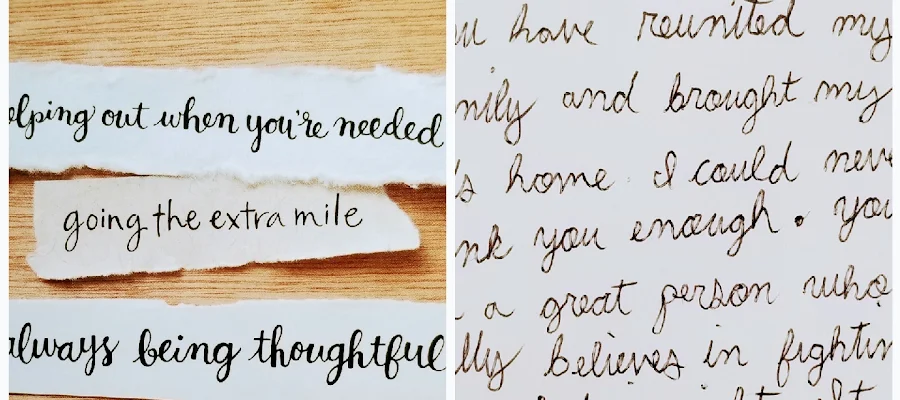 elping out when you're needed
going the extra mile
always being thoughtful
have reunited my
and brought my
home I could neve
nk you enough. you
a great person who
lly believes in fightin